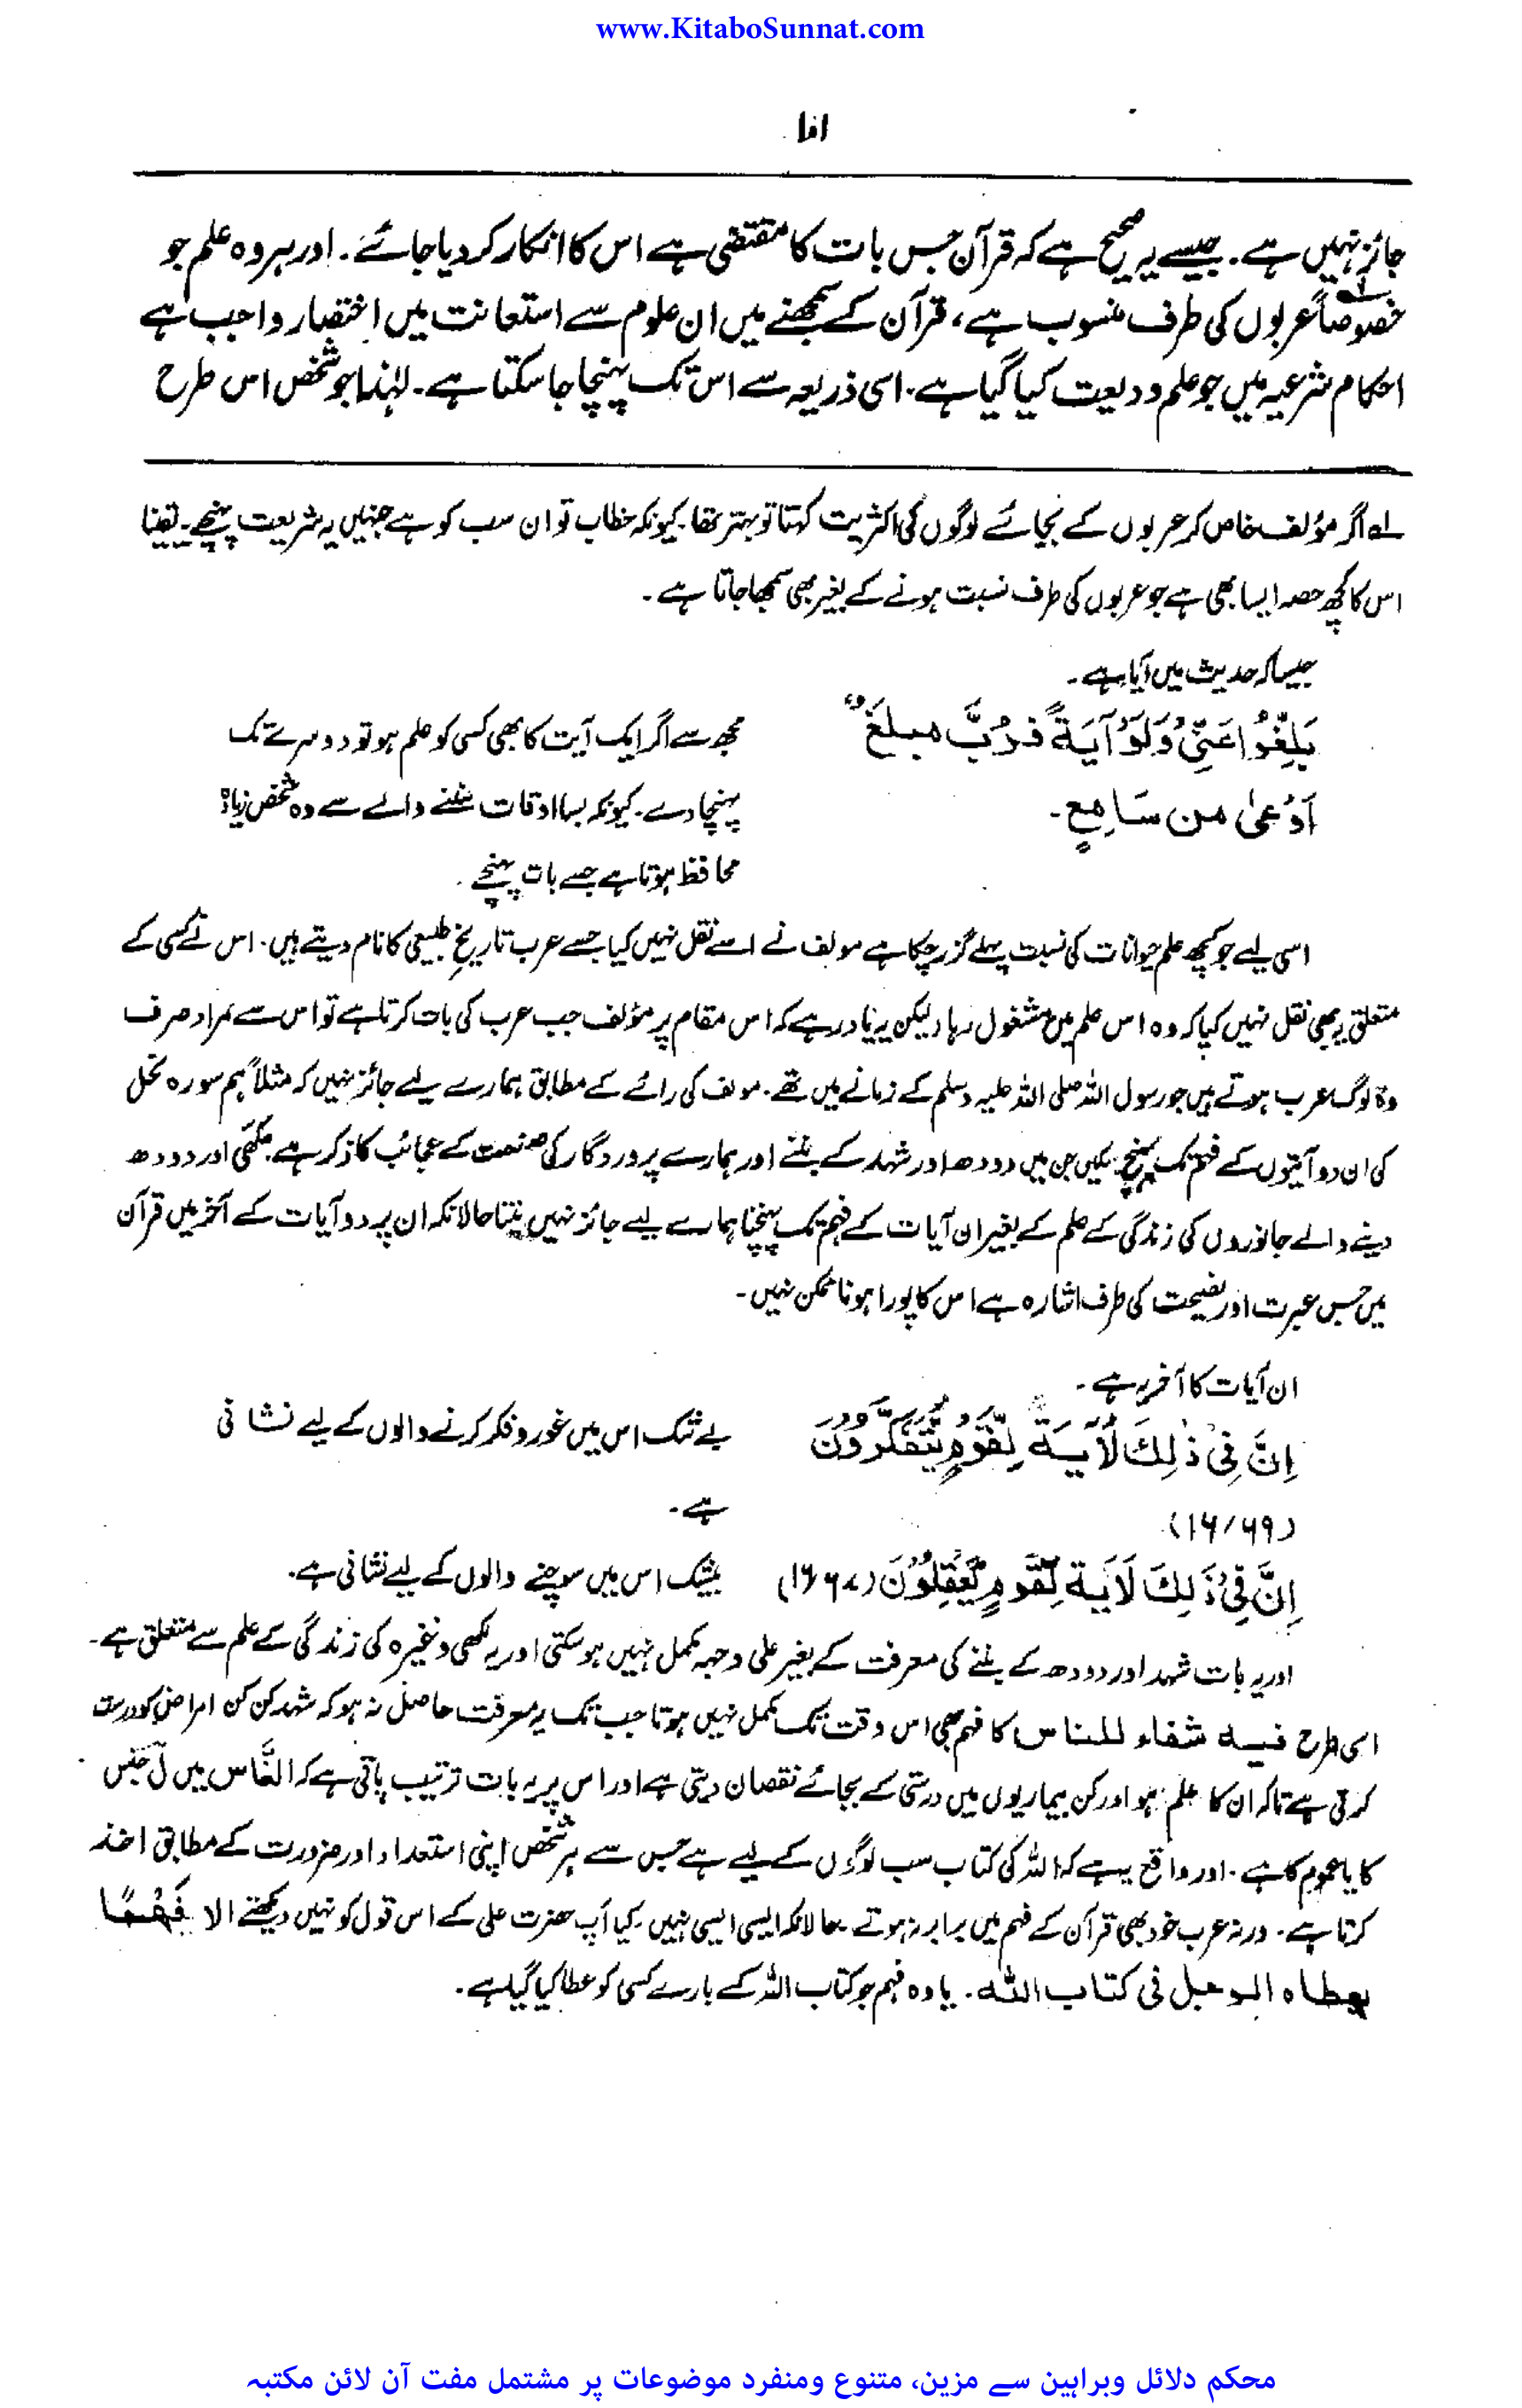 www.KitaboSunnat.com
۱۵۱
جائز نہیں ہے۔ جیسے یہ صحیح ہے کہ قرآن جس بات کا مقتضی ہے اس کا انکار کر دیا جائے۔ اور ہر وہ علم جو
خصوصاً عربوں کی طرف منسوب ہے، قرآن کے سمجھنے میں ان علوم سے استعانت میں اختصار واجب ہے
احکام شرعیہ میں جو علم ودیعت کیا گیا ہے۔ اسی ذریعہ سے اس تک پہنچا جا سکتا ہے۔ لہٰذا جو شخص اس طرح
لہ اگر مؤلف خاص کر عربوں کے بجائے لوگوں کی اکثریت کہتا تو بہتر تھا۔ کیونکہ خطاب تو ان سب کو ہے جنہیں یہ شریعت پہنچے۔ یقینا
اس کا کچھ حصہ ایسا بھی ہے جو عربوں کی طرف نسبت ہونے کے بغیر بھی سمجھا جاتا ہے۔
جیسا کہ حدیث میں آیا ہے۔
بَلِّغُوْا عَنِّیْ وَلَوْ آیَةً فَرُبَّ مبلغٍ
اَوْعٰی من سَامِعٍ۔
مجھ سے اگر ایک آیت کا بھی کسی کو علم ہو تو دوسرے تک
پہنچا دے۔ کیونکہ بسا اوقات سننے والے سے وہ شخص زیادہ
محافظ ہوتا ہے جسے بات پہنچے۔
اسی لیے جو کچھ علم حیوانات کی نسبت پہلے گزر چکا ہے مولف نے اسے نقل نہیں کیا جسے عرب تاریخ طبیعی کا نام دیتے ہیں۔ اس نے کسی کے
متعلق یہ بھی نقل نہیں کیا کہ وہ اس علم میں مشغول رہا ۔ لیکن یہ یاد رہے کہ اس مقام پر مؤلف جب عرب کی بات کرتا ہے تو اس سے مراد صرف
وہ لوگ عرب ہوتے ہیں جو رسول اللہ صلی اللہ علیہ وسلم کے زمانے میں تھے۔ مولف کی رائے کے مطابق ہمارے لیے جائز نہیں کہ مثلاً ہم سورہ نحل
کی ان دو آیتوں کے فہم تک پہنچ سکیں جن میں دودھ اور شہد کے بننے اور ہمارے پروردگار کی صنعت کے عجائب کا ذکر ہے۔ مکھی اور دودھ
دینے والے جانوروں کی زندگی کے علم کے بغیر ان آیات کے فہم تک پہنچنا ہمارے لیے جائز نہیں بنتا حالانکہ ان پر دو آیات کے آخر میں قرآن
میں جس عبرت اور نصیحت کی طرف اشارہ ہے اس کا پورا ہونا ممکن نہیں۔
ان آیات کا آخر یہ ہے۔
اِنَّ فِیْ ذٰلِكَ لَاٰیَةً لِّقَوْمٍ یَّتَفَكَّرُوْنَ
(۱۶/۶۹)
بے شک اس میں غور و فکر کرنے والوں کے لیے نشانی
ہے۔
اِنَّ فِیْ ذٰلِكَ لَاٰیَة لِّقَوْمٍ یَّعْقِلُوْنَ (۱۶/۶۷)
بیشک اس میں سوچنے والوں کے لیے نشانی ہے۔
اور یہ بات شہد اور دودھ کے بننے کی معرفت کے بغیر علی وجہہ مکمل نہیں ہو سکتی اور یہ مکھی وغیرہ کی زندگی کے علم سے متعلق ہے۔
اسی طرح فیہ شفاء للناس کا فہم بھی اس وقت تک مکمل نہیں ہوتا جب تک یہ معرفت حاصل نہ ہو کہ شہد کن کن امراض کو درست
کرتی ہے تاکہ ان کا علم ہو اور کن بیماریوں میں درستی کے بجائے نقصان دیتی ہے اور اس پر یہ بات ترتیب پاتی ہے کہ النَّاس میں ل جنس
کا یا عموم کا ہے۔ اور واقع یہ ہے کہ اللہ کی کتاب سب لوگوں کے لیے ہے جس سے ہر شخص اپنی استعداد اور ضرورت کے مطابق اخذ
کرتا ہے۔ ورنہ عرب خود بھی قرآن کے فہم میں برابر نہ ہوتے حالانکہ ایسی ایسی نہیں۔ کیا آپ حضرت علی کے اس قول کو نہیں دیکھتے الا فَهْمًا
یعطاہ الرجل فی کتاب اللہ۔ یا وہ فہم جو کتاب اللہ کے بارے کسی کو عطا کیا گیا ہے۔
محکم دلائل وبراہین سے مزین، متنوع ومنفرد موضوعات پر مشتمل مفت آن لائن مکتبہ